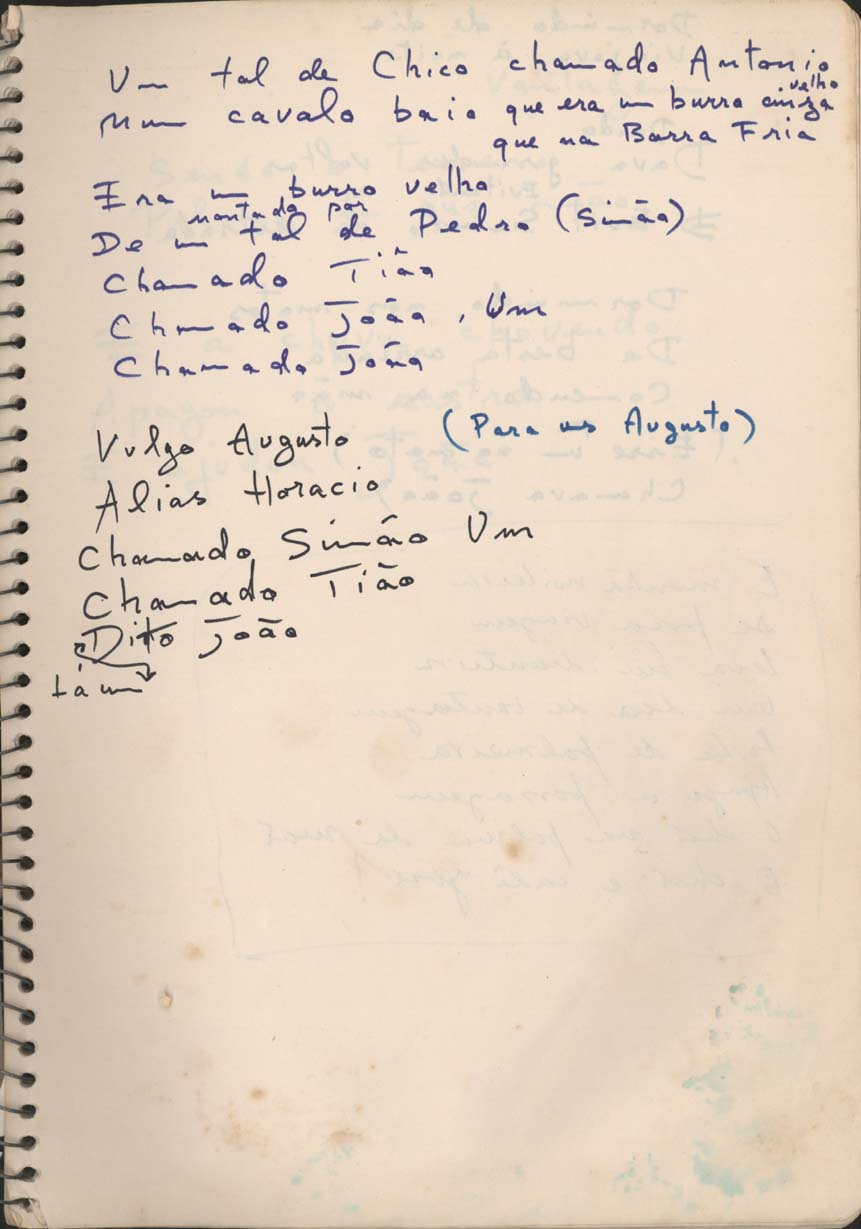 Um tal de Chico chamado Antonio
velho
Num cavalo baio que era um burro cinza
que na Barra Fria
Era um burro velho
montado por
De um tal de Pedro (Simão)
Chamado Tião
Chamado João, Um
Chamado João
Vulgo Augusto (Para us Augusto)
Alias Horacio
Chamado Simão Um
Chamado Tião
Dito João
tá um